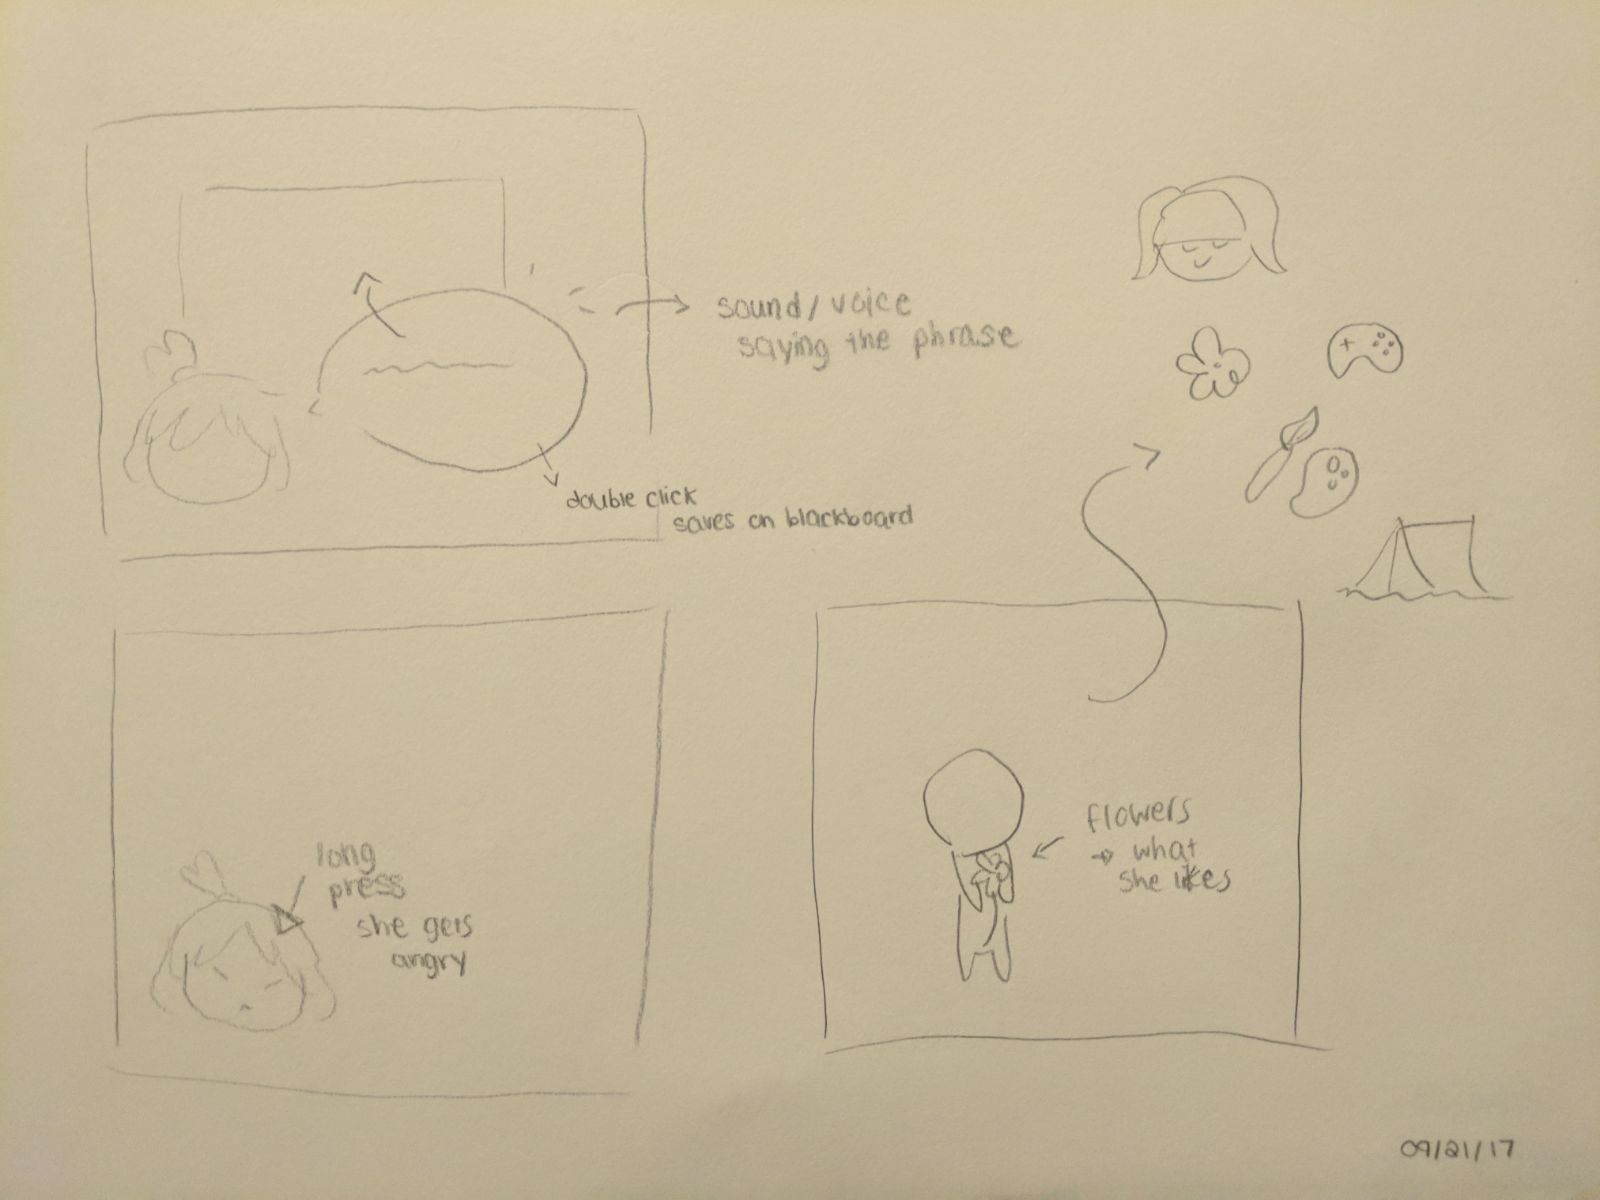 sound/voice
saying the phrase
double click
saves on blackboard
long
press
she gets
angry
flowers
→ what
she likes
09/21/17